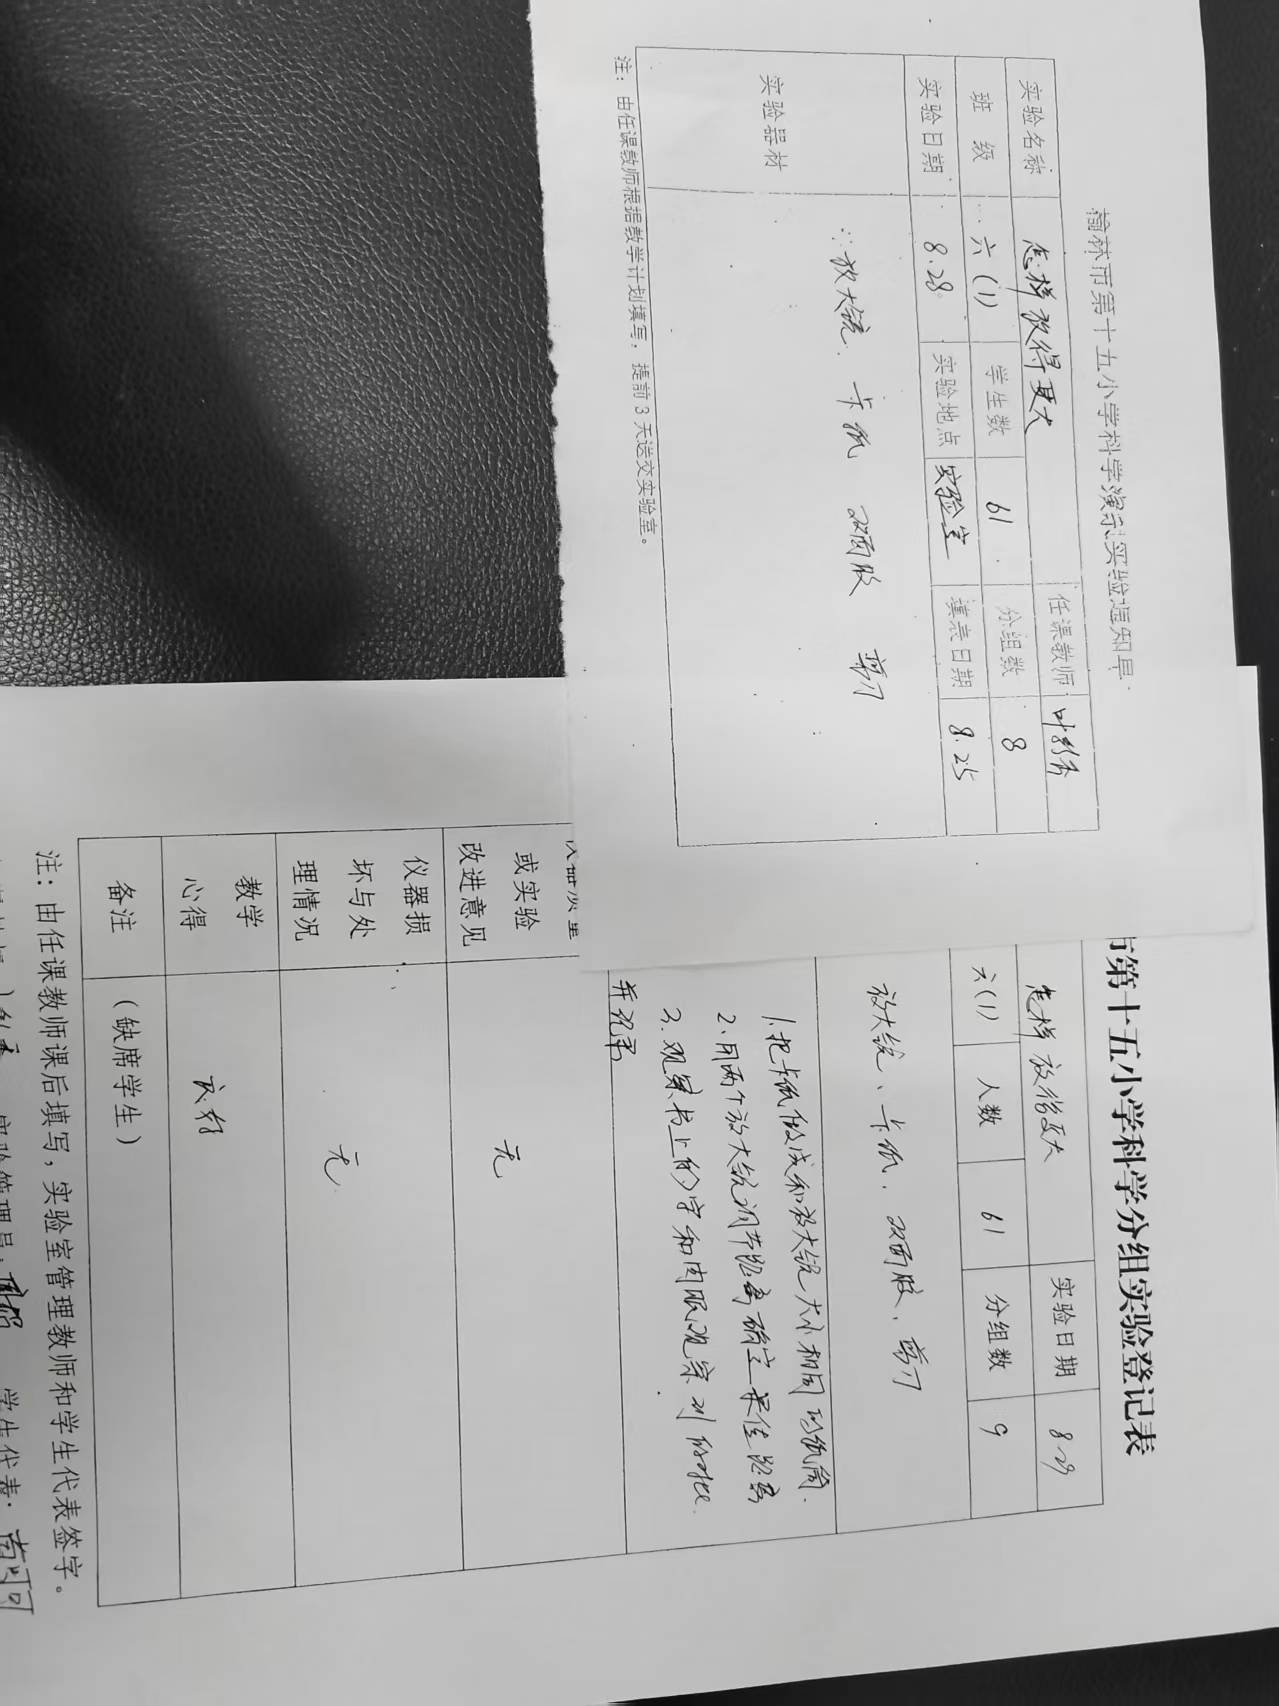 榆林市第十五小学科学演示实验通知单
实验名称 怎样放得更大 任课教师
班 级 六(1) 学生数 61 分组数 8
实验日期 8.28 实验地点 实验室 填表日期 8.25
实验器材 放大镜、卡纸 双面胶 剪刀
注：由任课教师根据教学计划填写，提前3天送交实验室。
市第十五小学科学分组实验登记表
怎样放得更大 实验日期 8.29
六(1) 人数 61 分组数 9
放大镜、卡纸、双面胶、剪刀
1.把卡纸做成和放大镜大小相同的纸筒.
2.用两个放大镜调节距离确定最佳距离
3.观察书上的字和肉眼观察对
并记录
或实验
改进意见 无
仪器损
坏与处
理情况 无
教学
心得 良好
备注 （缺席学生）
注：由任课教师课后填写，实验室管理教师和学生代表签字。
实验管理员： 学生代表：